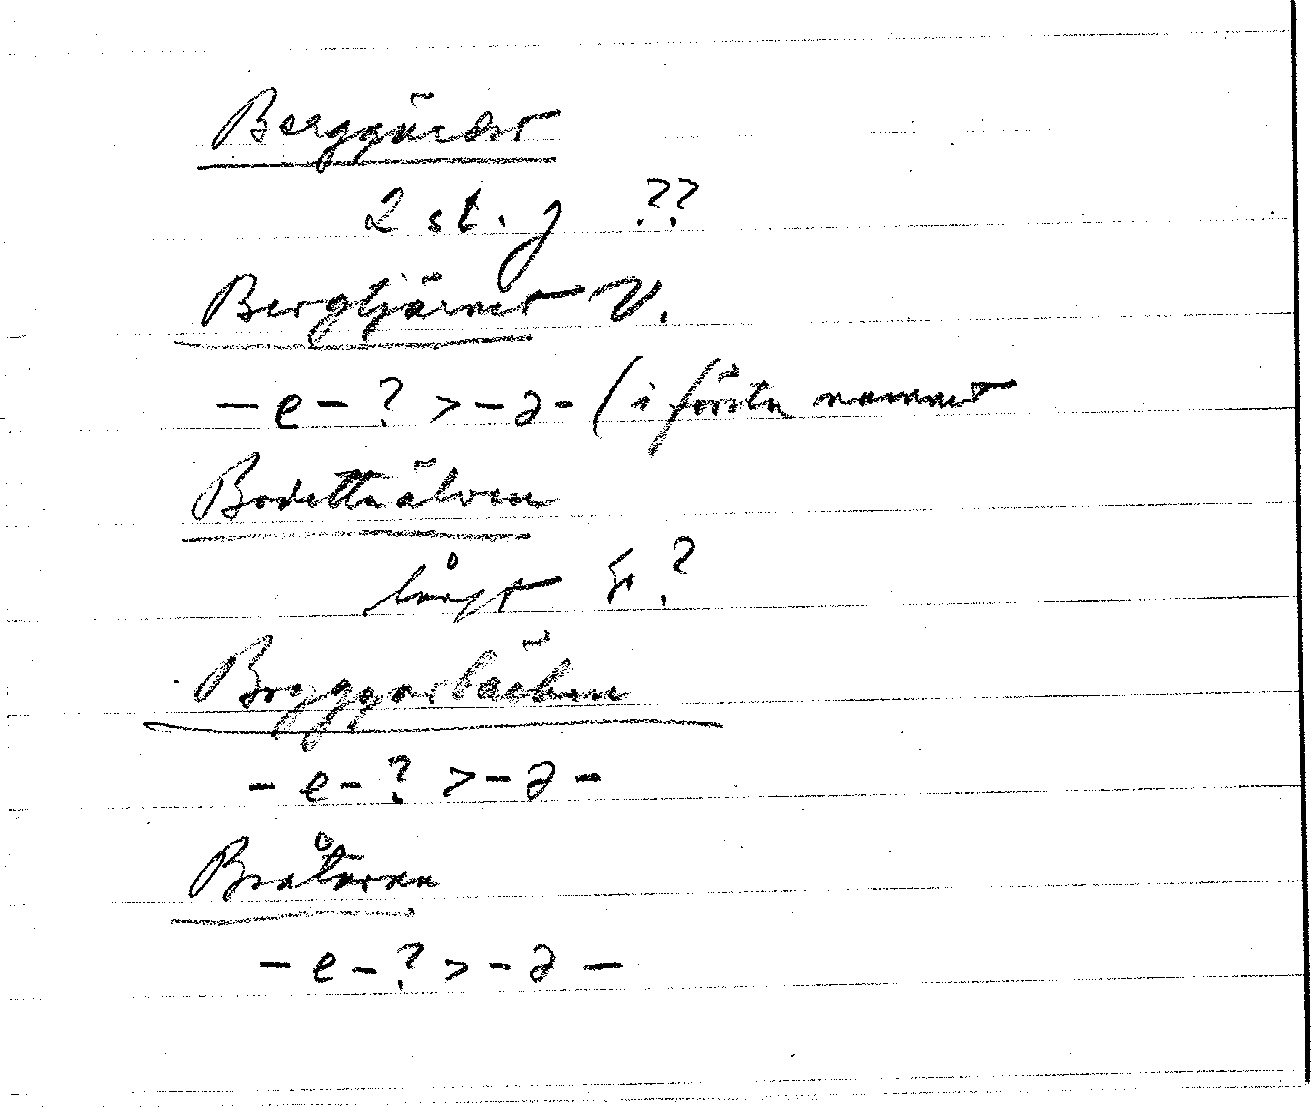 Berggärdet
2 st. j ??
Bergtjärnet V.
– e – ? > – ə – (i första namnet
Bodettälven
långt ?
Bryggarbäcken
– e – ? > – ə –
Bråtarna
– e – ? > – ə –